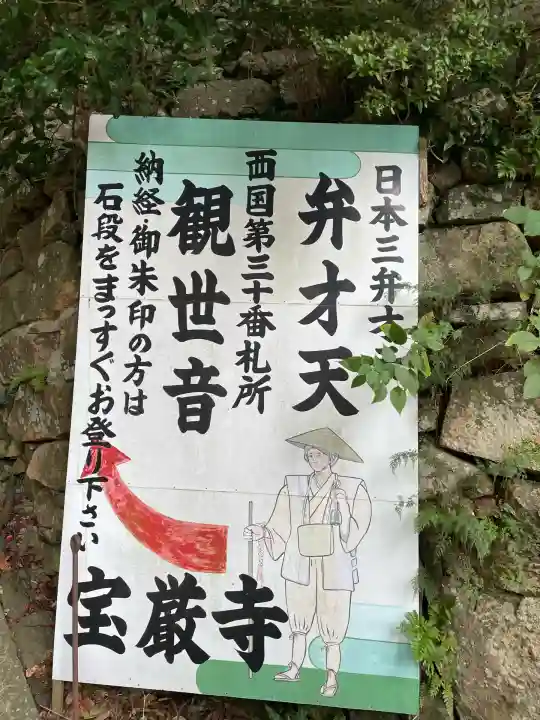 日本三弁才
弁才天
西国第三十番札所
観世音
納経・御朱印の方は
石段をまっすぐお登り下さい
宝厳寺